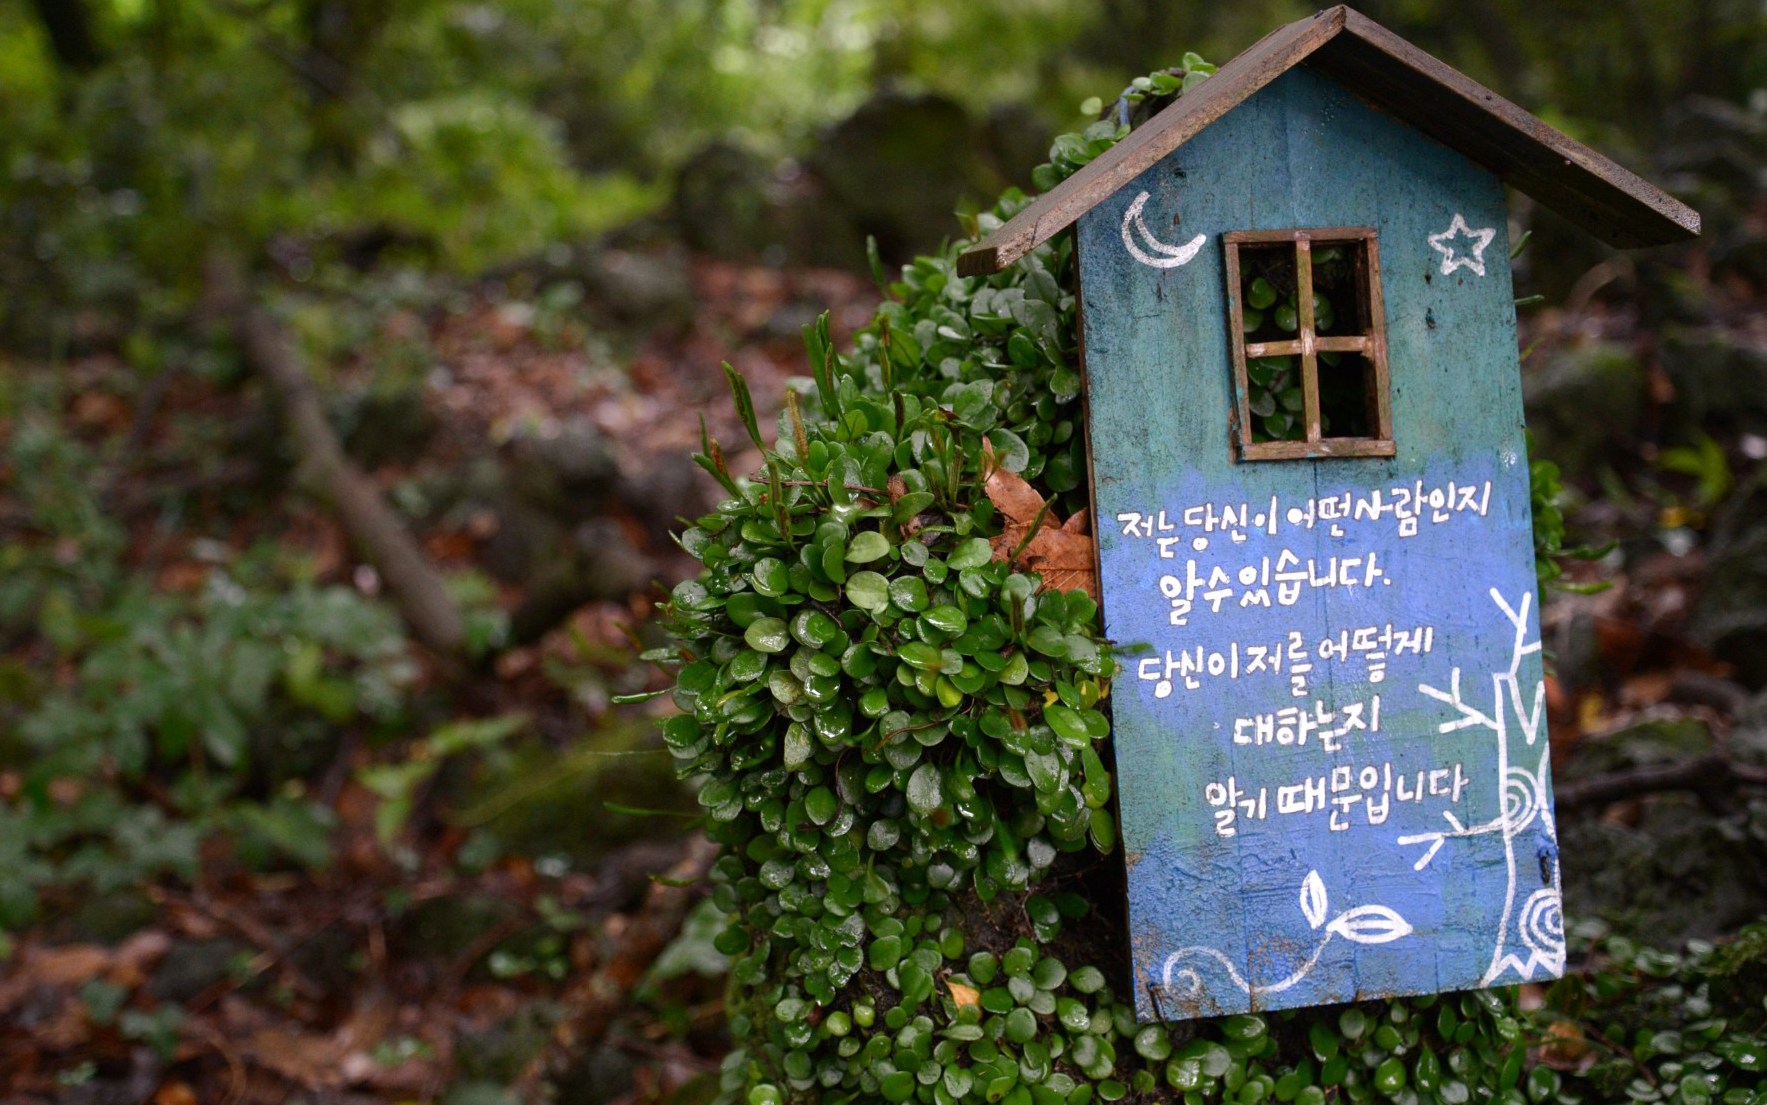 저는 당신이 어떤 사람인지
알 수 있습니다.
당신이 저를 어떻게
대하는지
알기 때문입니다